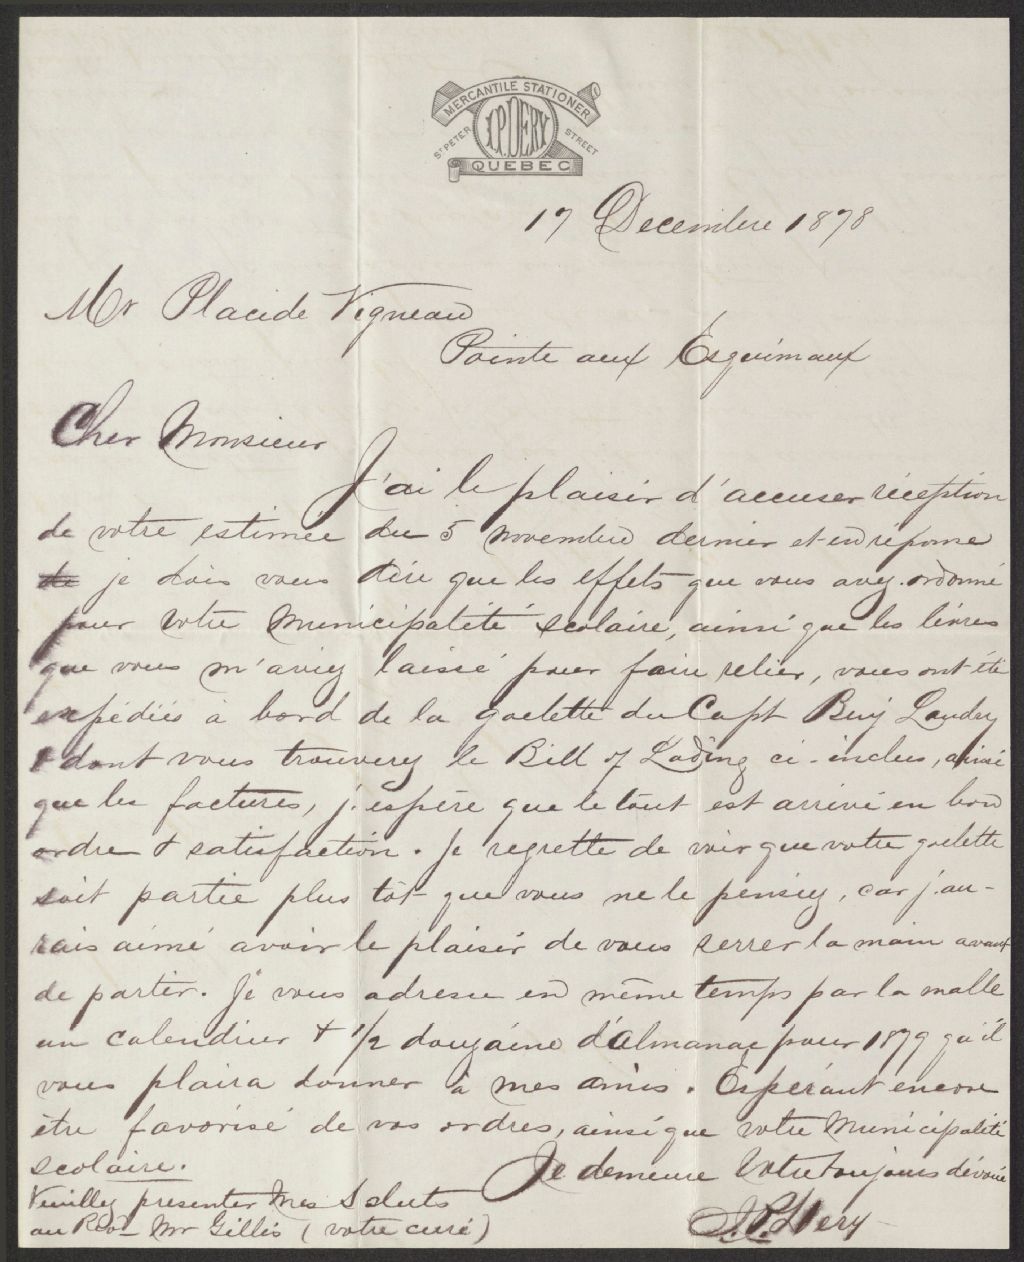 MERCANTILE STATIONER
I.P. DERY
ST PETER STREET
QUEBEC
17 Decembre 1878
Mr Placide Vigneau
Pointe aux Esquimaux
Cher Monsieur
J'ai le plaisir d'accuser réception
de votre estimée du 5 novembre dernier et en réponse
je dois vous dire que les effets que vous avez ordonné
pour votre Municipalité scolaire, ainsi que les livres
que vous m'aviez laissé pour faire relier, vous ont été
expédiés à bord de la goelette du Capt Benj Landry
& dont vous trouverez le Bill of Lading ci-inclus, ainsi
que les factures, j'espère que le tout est arrivé en bon
ordre & satisfaction. Je regrette de voir que votre goelette
soit partie plus tôt que vous ne le pensiez, car j'au-
rais aimé avoir le plaisir de vous serrer la main avant
de partir. Je vous adresse en même temps par la malle
un calendrier & 1/2 douzaine d'almanac pour 1879 qu'il
vous plaira donner à mes amis. Espérant encore
être favorisé de vos ordres, ainsi que votre Municipalité
scolaire.
Je demeure Votre toujours dévoué
Veuillez presenter mes Saluts
au Rév Mr Gillis (votre curé)
I.P. Dery